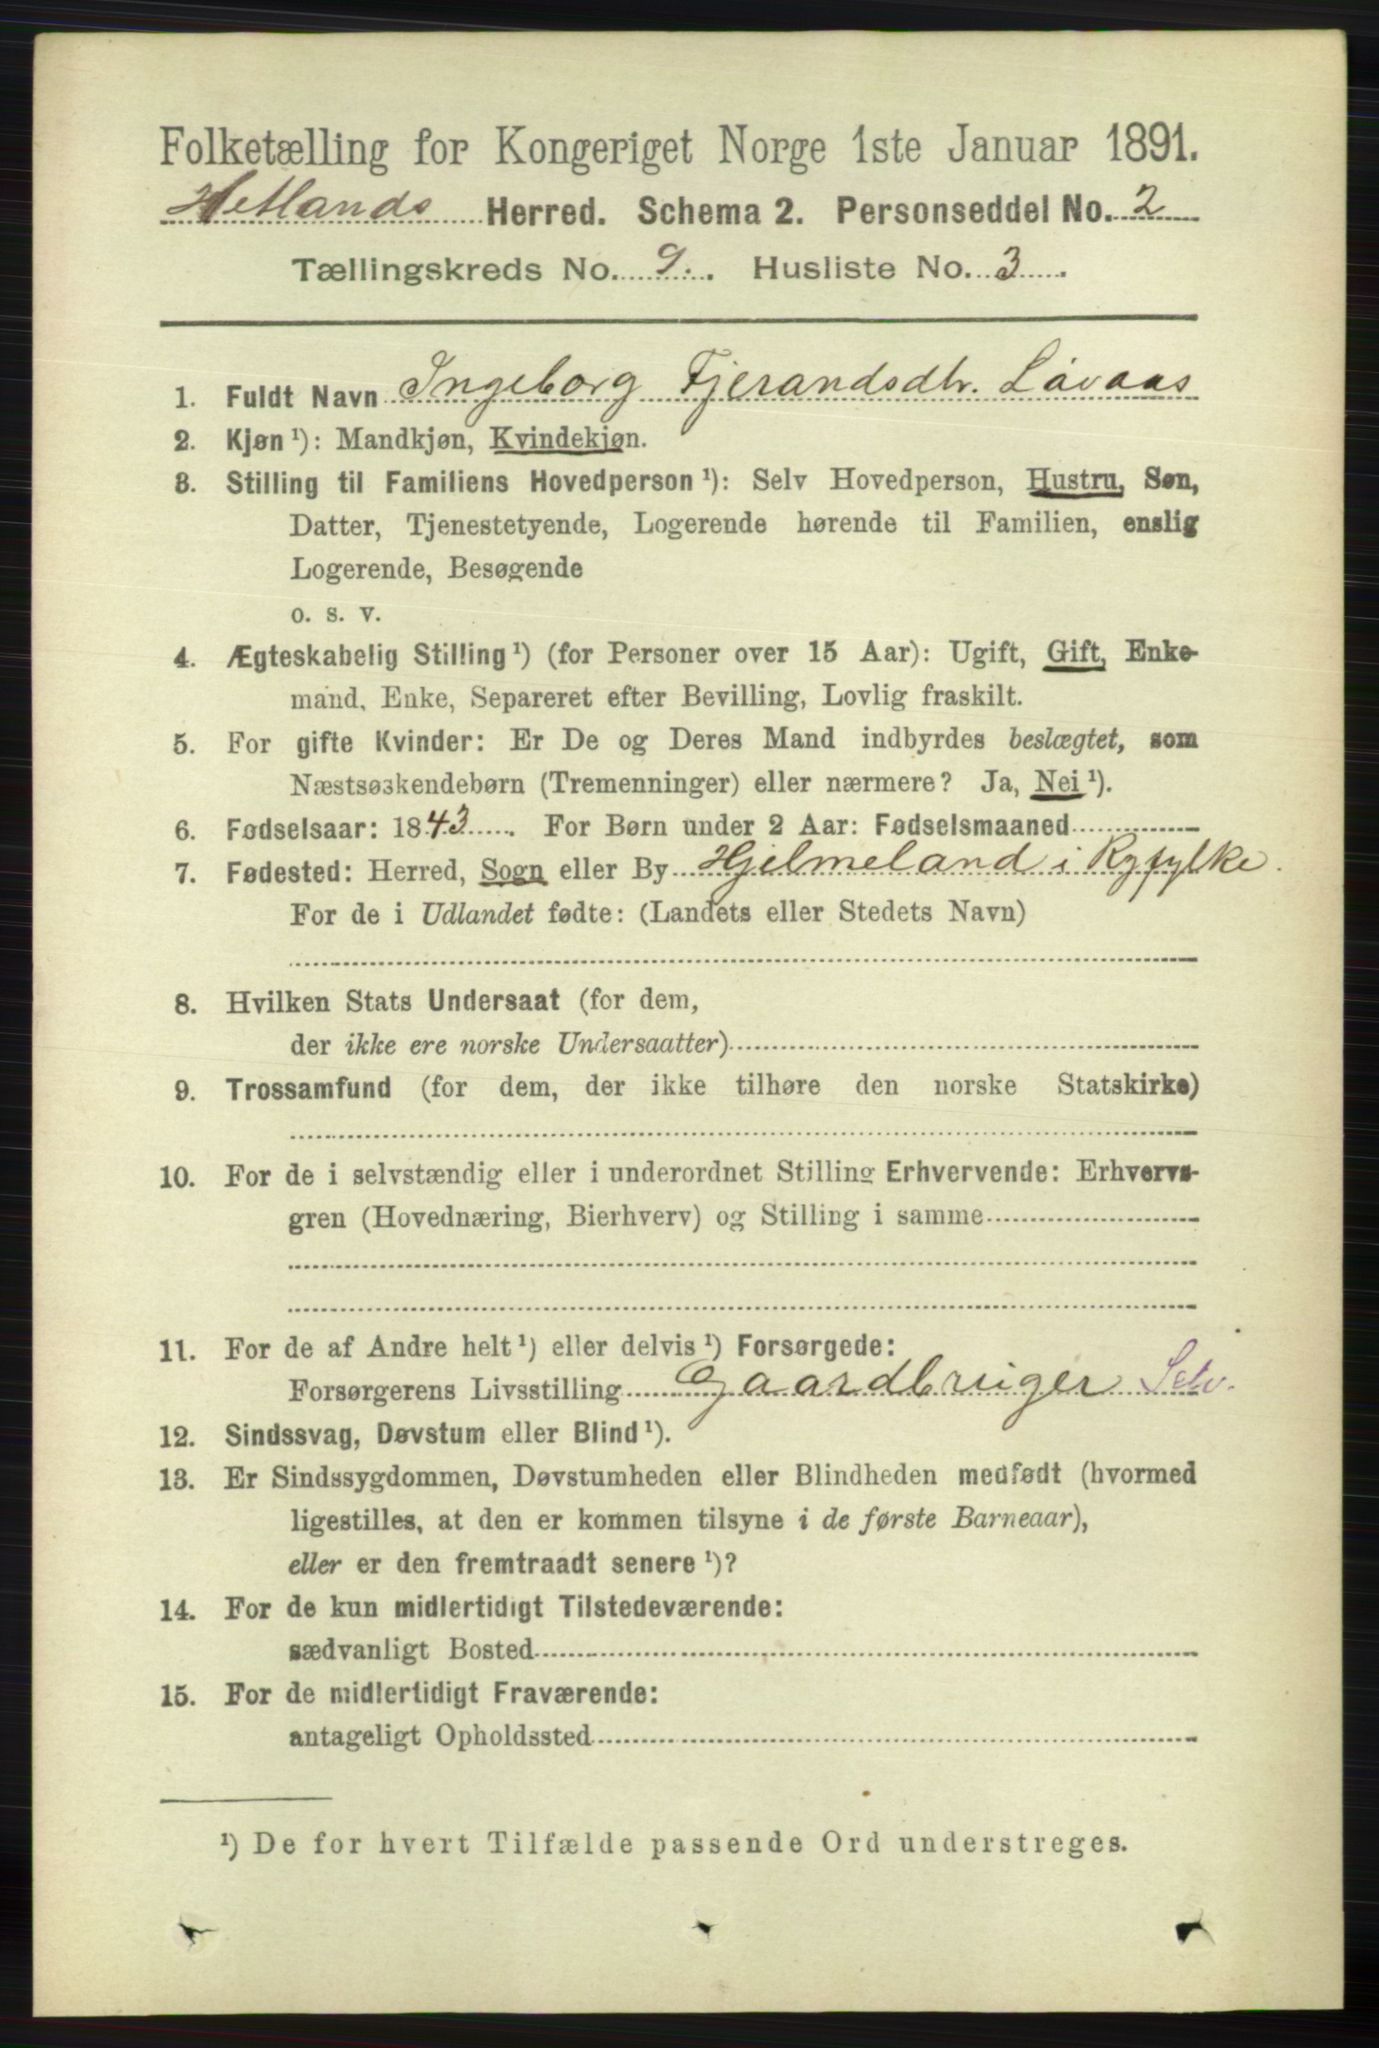 Folketælling for Kongeriget Norge 1ste Januar 1891.
Hetlands Herred. Schema 2. Personseddel No. 2
Tællingskreds No. 9. Husliste No. 3.
1. Fuldt Navn Ingeborg Fjerandsdtr. Løvaas
2. Kjøn ¹): Mandkjøn, Kvindekjøn.
3. Stilling til Familiens Hovedperson ¹): Selv Hovedperson, Hustru, Søn,
Datter, Tjenestetyende, Logerende hørende til Familien, enslig
Logerende, Besøgende
o. s. v.
4. Ægteskabelig Stilling ¹) (for Personer over 15 Aar): Ugift, Gift, Enke-
mand, Enke, Separeret efter Bevilling, Lovlig fraskilt.
5. For gifte Kvinder: Er De og Deres Mand indbyrdes beslægtet, som
Næstsøskendebørn (Tremenninger) eller nærmere? Ja, Nei ¹).
6. Fødselsaar: 1843. For Børn under 2 Aar: Fødselsmaaned
7. Fødested: Herred, Sogn eller By Hjelmeland i Ryfylke.
For de i Udlandet fødte: (Landets eller Stedets Navn)
8. Hvilken Stats Undersaat (for dem,
der ikke ere norske Undersaatter)
9. Trossamfund (for dem, der ikke tilhøre den norske Statskirke)
10. For de i selvstændig eller i underordnet Stilling Erhvervende: Erhvervs-
gren (Hovednæring, Bierhverv) og Stilling i samme
11. For de af Andre helt ¹) eller delvis ¹) Forsørgede:
Forsørgerens Livsstilling Gaardbruger Selv.
12. Sindssvag, Døvstum eller Blind ¹).
13. Er Sindssygdommen, Døvstumheden eller Blindheden medfødt (hvormed
ligestilles, at den er kommen tilsyne i de første Barneaar),
eller er den fremtraadt senere ¹)?
14. For de kun midlertidigt Tilstedeværende:
sædvanligt Bosted
15. For de midlertidigt Fraværende:
antageligt Opholdssted
¹) De for hvert Tilfælde passende Ord understreges.